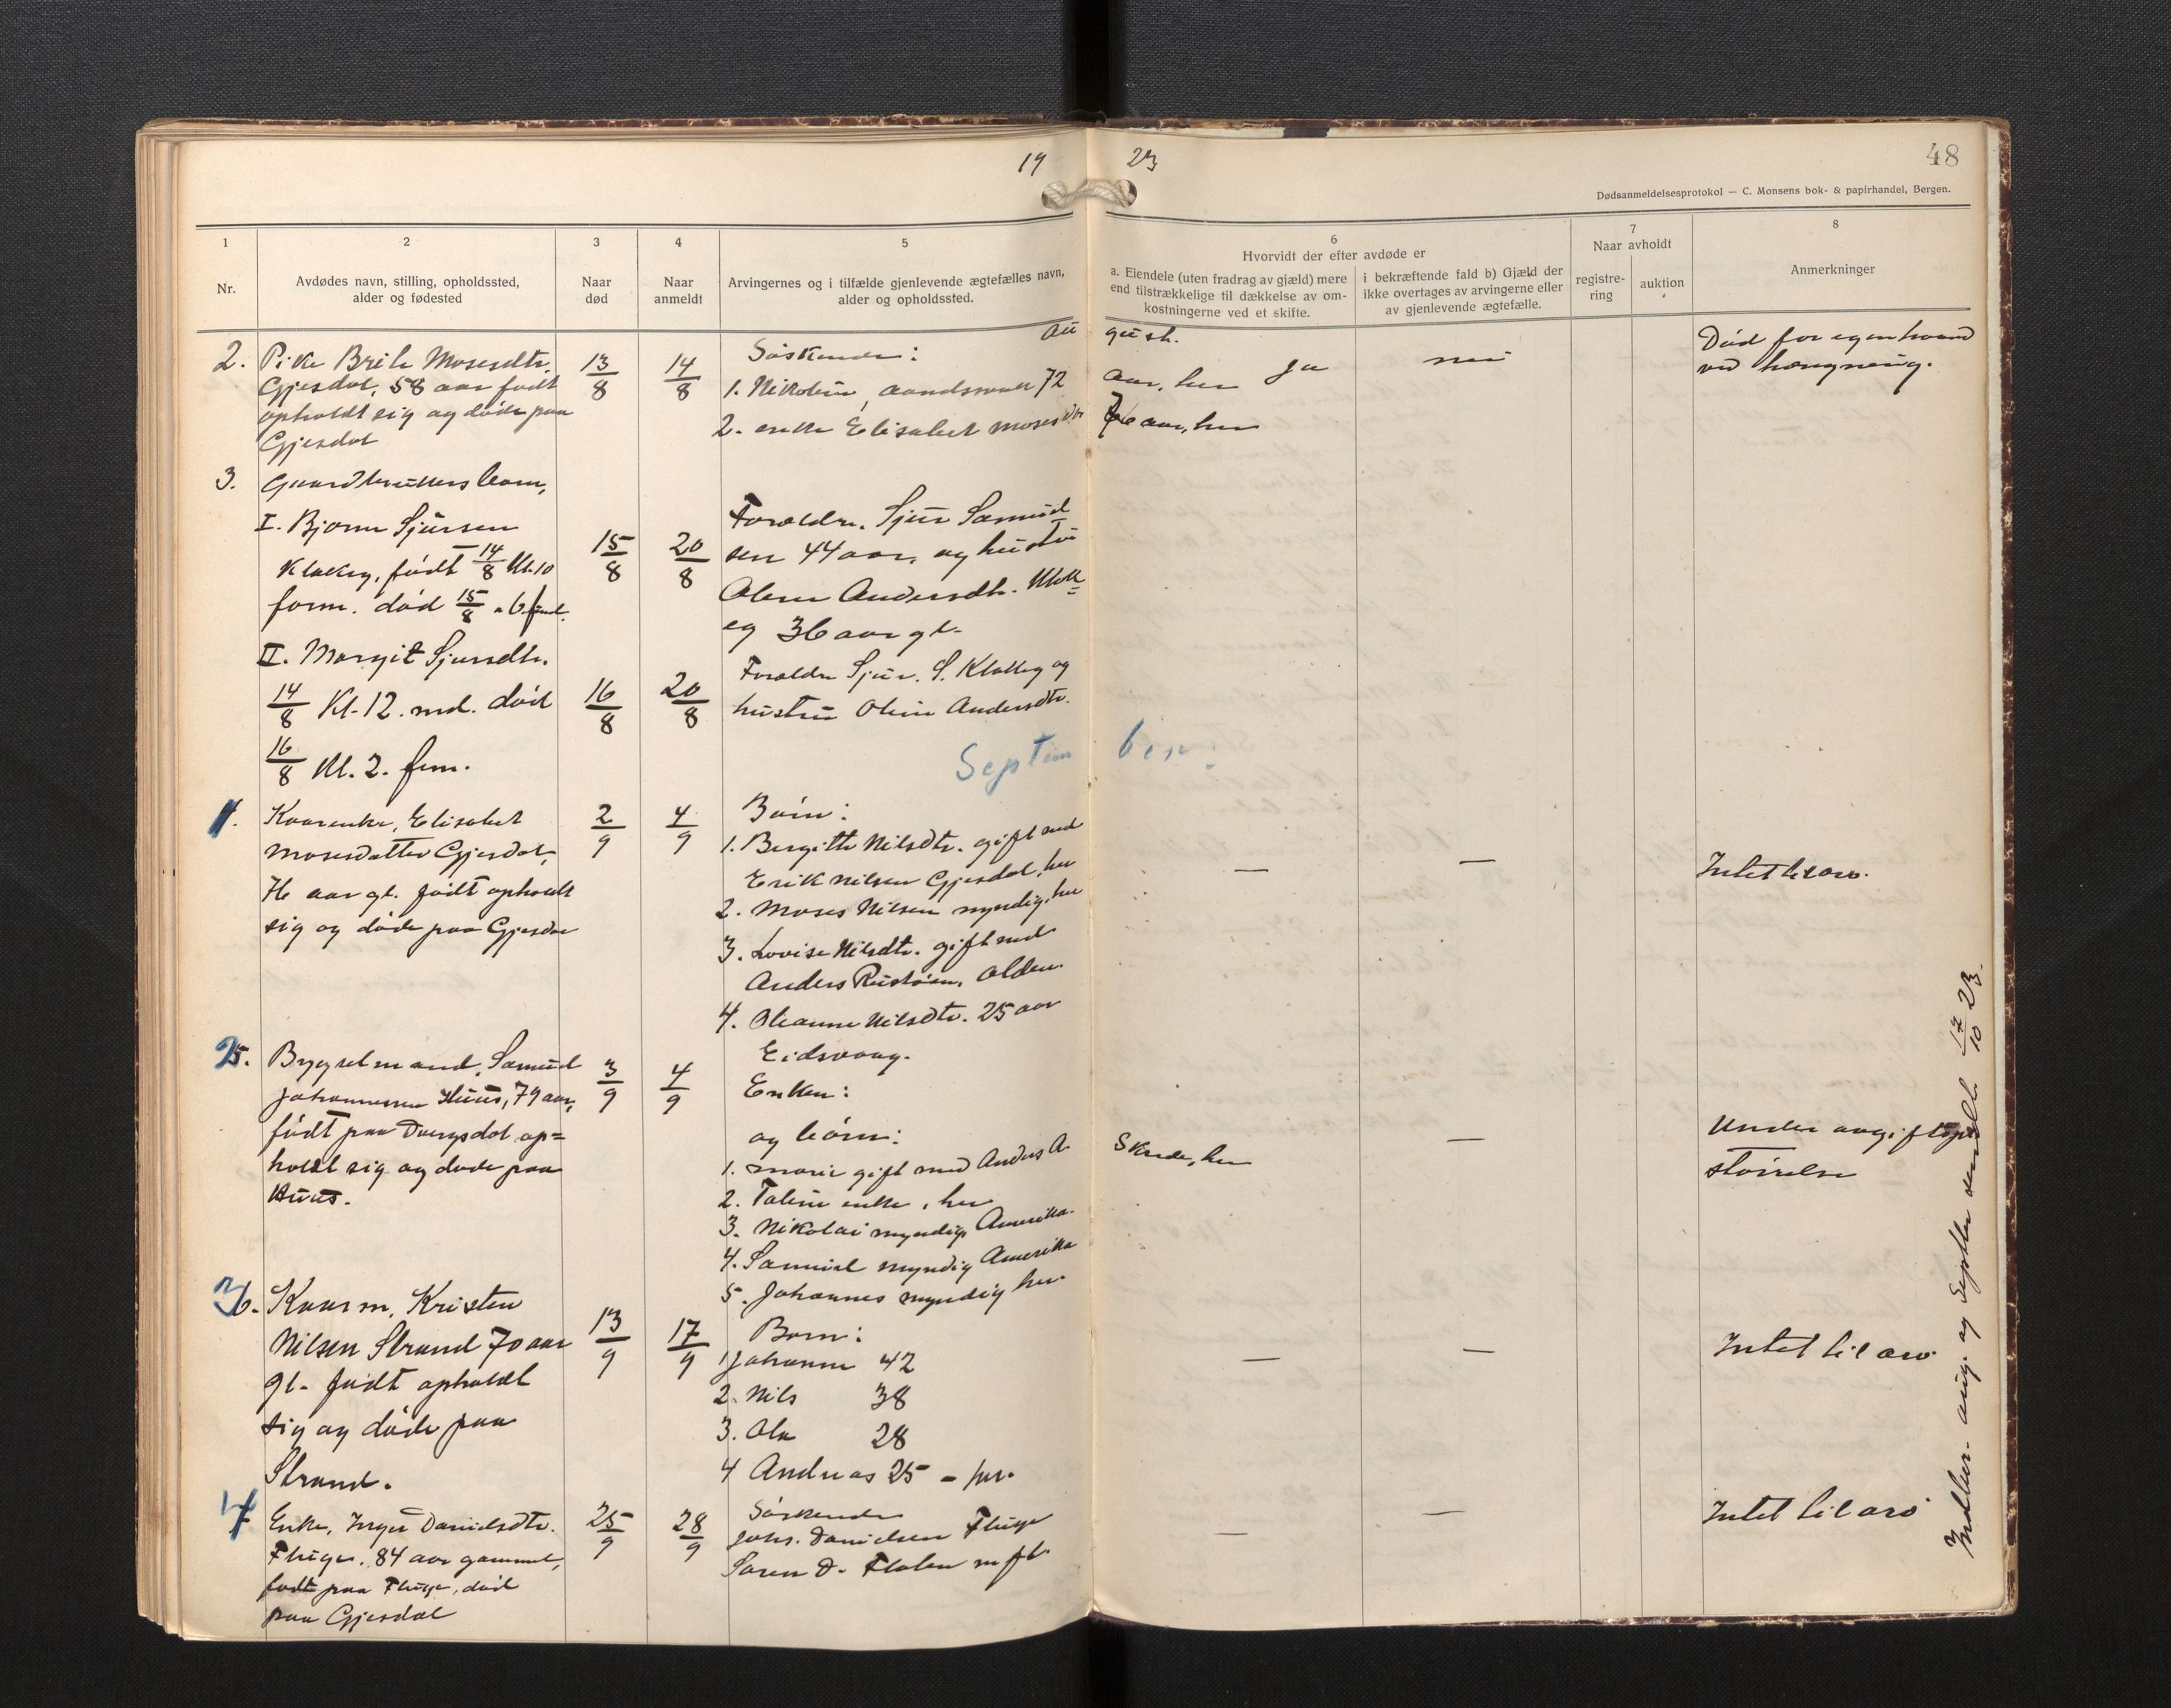 19 23
48
Dødsanmeldelsesprotokol — C. Monsens bok- & papirhandel, Bergen.
1
Nr.
2
Avdødes navn, stilling, opholdssted,
alder og fødested
3
Naar
død
4
Naar
anmeldt
5
Arvingernes og i tilfælde gjenlevende ægtefælles navn,
alder og opholdssted.
6
Hvorvidt der efter avdøde er
a. Eiendele (uten fradrag av gjæld) mere
end tilstrækkelige til dækkelse av om-
kostningerne ved et skifte.
i bekræftende fald b) Gjæld der
ikke overtages av arvingerne eller
av gjenlevende ægtefælle.
7
Naar avholdt
registre-
ring
auktion
8
Anmerkninger
August.
2. Pike Brite Mosesdtr.
Gjesdal, 58 aar født
opholdt sig og døde paa
Gjesdal
13/8
14/8
Søskende:
1. Nikoline, aandssvak 72 aar, her
2. enke Elisabet Mosesdtr 76 aar, her
Ja
nei
Død for egen haand
ved hængning.
3. Gaardbrukers barn,
I. Bjarne Sjursen
Klakeg, født 14/8 kl. 10
form. død 15/8 " 6 fmd.
15/8
20/8
Foræeldre. Sjur Samuel
sen 44 aar, og hustru
Oline Andersdtr. Klak=
eg 36 aar gl.
II. Margit Sjursdtr.
14/8 Kl. 12. md. død
16/8 kl. 2. fm.
16/8
20/8
Foreldre Sjur. S. Klakeg og
hustru Oline Andersdtr.
September:
1. Kaarenke, Elisabet
Mosesdatter Gjesdal,
76 aar gl. født opholdt
sig og døde paa Gjesdal
2/9
4/9
Børn:
1. Bergitte Nilsdtr. gift med
Erik Nilsen Gjesdal, her
2. Moses Nilsen myndig, her
3. Lovise Nilsdtr. gift med
Anders Rustøen, Olden.
4. Oleanne Nilsdtr. 25 aar
Eidsvaag.
— —
Intet til arv.
2. Bygselmand, Samuel
Johannessen Huus, 79 aar,
født paa Dvergsdal op=
holdt sig og døde paa
Huus.
3/9
4/9
Enken:
og børn:
1. Marie gift med Anders A. Skrede, her
2. Taline enke, her
3. Nikolai myndig, Amerika.
4. Samuel myndig Amerika
5. Johannes myndig her.
—
Under avgiftspl.
størrelse
3. Kaarm, Kristen
Nilsen Strand 70 aar
gl. født opholdt
sig og døde paa
Strand.
13/9
17/9
Børn:
1 Johanne 42
2. Nils 38
3. Ole 28
4 Andreas 25 - her.
— —
Intet til arv
4 Enke, Inger Danielsdtr.
Fluge. 84 aar gammel,
født paa Fluge, død
paa Gjesdal
25/9
28/9
Søskende
Johs. Danielsen Fluge
Søren D. Flølen m fl.
— —
Intet til arv
Indber. aug. og Septbr. 17/10 23.